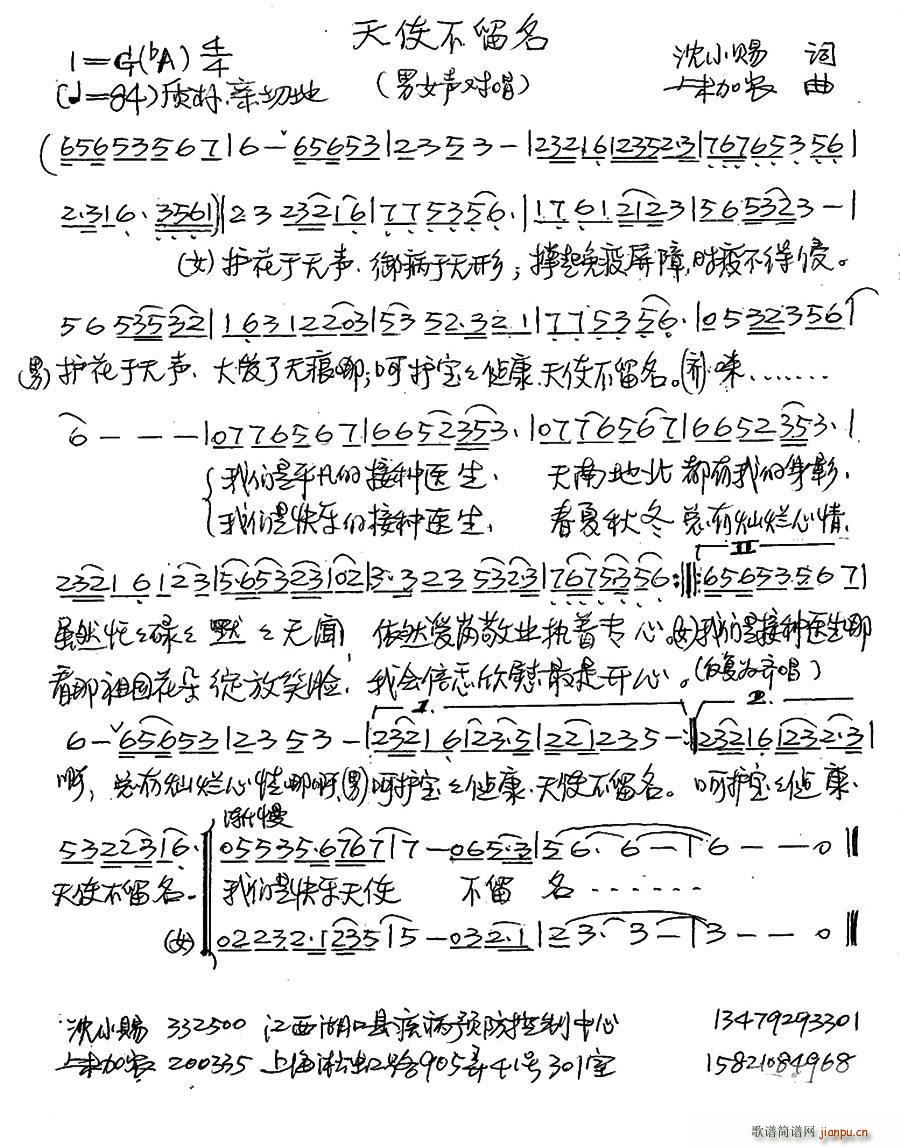 天使不留名
1=G(♭A) 4/4
沈小赐 词
(♩=84)质朴.亲切地
(男女声对唱)
卜加农 曲
(656535671|6-ˇ65653|2353-|232161235 2·3|7676535 6|
2·316·3561)|2323216|775356·|17612123|5653 23-|
(女)护花于无声.御病于无形;撑起免疫屏障,时疫不得侵。
5653532|16312203|5352·321|775356·|053223 56|
(男)护花于无声、大爱了无痕哪;呵护宝々健康.天使不留名。(齐)唻.......
6---|0776567|6652353·|0776567|6652353·|
我们是平凡的接种医生、 天南地北都有我的身影、
我们是快乐的接种医生、 春夏秋冬总有灿烂心情,
II
232161 23|5·6532302|3·3235323|7675356:‖:65653·567|
虽然忙々碌々 默々无闻, 依然爱岗敬业执着专心。(女)我们是接种医生哪
看那祖国花朵绽放笑脸, 我会倍感欣慰最是开心。(反复为齐唱)
1. 2.
6-ˇ656531|2353-|2321623·5|221235-:‖232161232·3|
啊,总有灿烂心情哪啊,(男)呵护宝々健康.天使不留名。呵护宝々健康、
渐慢
5322316·‖05535·6767|7-065·3|56·6-|6--0‖
天使不留名。 我们是快乐天使 不留 名......
(女) 02232·1235|5-032·1|23·3-|3--0‖
沈小赐 332500 江西湖口县疾病预防控制中心 13479293301
卜加农 200335 上海淞虹路905弄41号301室 15821084968
歌谱简谱网
jianpu.cn